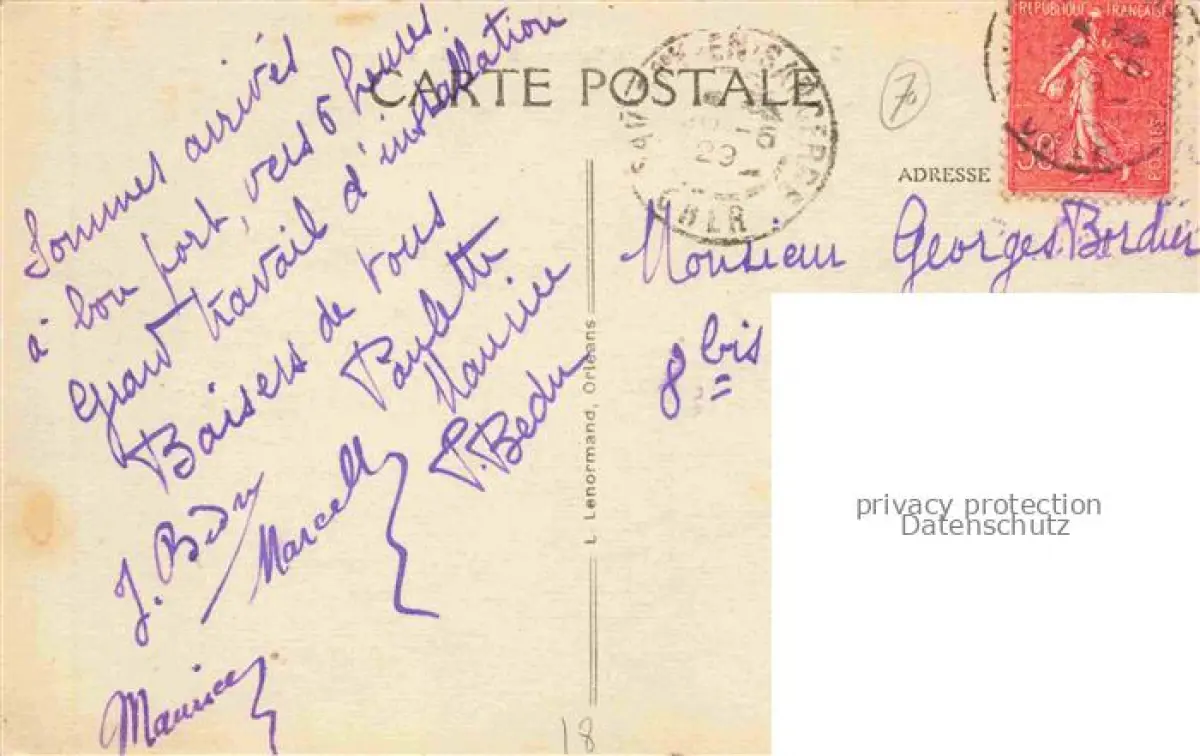 CARTE POSTALE
Sommes arrivés
à bon port, vers 6 heures.
Grand travail d'installation
Baisers de tous
Paulette
Maurice
P. Bedu
J. Bedu
Marcelle
Maurice
L. Lenormand, Orléans
18
70
REPUBLIQUE FRANÇAISE
50
POSTES
EN-SANCERRE
CHER
ADRESSE
Monsieur Georges Bordier
8 bis
privacy protection
Datenschutz